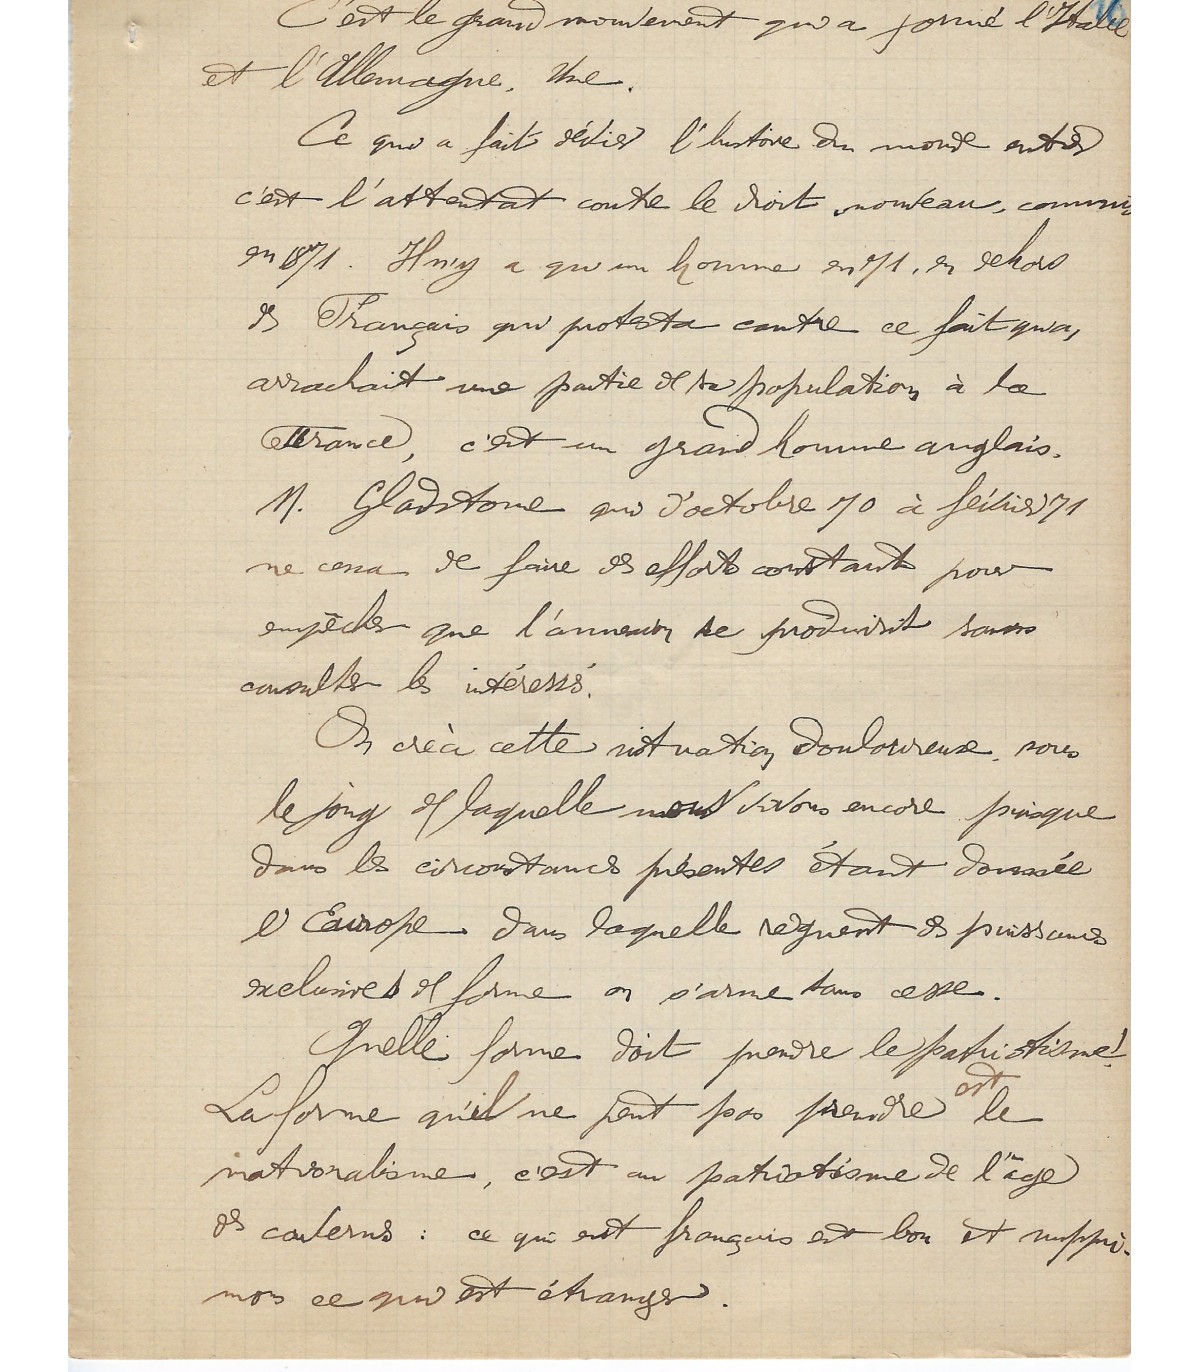 C'est le grand mouvement qui a formé l'Italie
et l'Allemagne, Une.
Ce qui a fait dévier l'histoire du monde entier
c'est l'attentat contre le droit nouveau, commis
en 1871. Il n'y a qu'un homme en 71, en dehors
des Français qui protesta contre ce fait qui
arrachait une partie de sa population à la
France, c'est un grand homme anglais.
M. Gladstone qui d'octobre 70 à février 71
ne cessa de faire des efforts constants pour
empêcher que l'annexion se produisit sans
consulter les intéressés.
On créa cette situation douloureuse, sous
le joug de laquelle nous vivons encore puisque
dans les circonstances présentes étant donnée
l'Europe dans laquelle règnent des puissances
exclusives de forme on s'arme sans cesse.
Quelle forme doit prendre le patriotisme!
La forme qu'il ne peut pas prendre est le
nationalisme, c'est un patriotisme de l'âge
des cavernes : ce qui est français est bon et suppri-
mons ce qui est étranger.